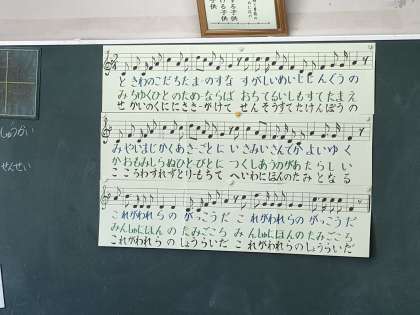 る子供
ける子供
子供
ときわのこだちたまのすな すがしいめいじじんぐうの
みちゆくひとのためならば おちてるいしもすてたまえ
せかいのくににさきがけて せんそうすてたけんぽうの
みやいまぢかくあさごとに いさみいさんでかよいゆく
かおもみしらぬひとびとに つくしあうのがあたらしい
こころわすれずとりもちて へいわにほんのたみとなる
これがわれらの がっこうだ これがわれらの がっこうだ
みんしゅにほんの たみごころ みんしゅにほんの たみごころ
これがわれらの しょうらいだ これがわれらの しょうらいだ
しゅうかい
せんせい